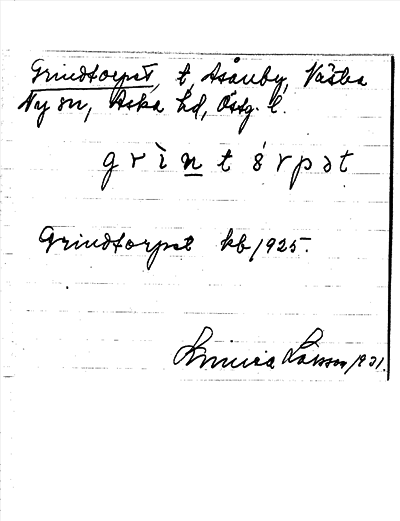 Grindtorpet, t, Åsånby, Västra
Ny sn, Aska hd, Östg. l.
g r ì n t ó r p ə t
Grindtorpet kb 1925.
Linnea Larsson 1931.